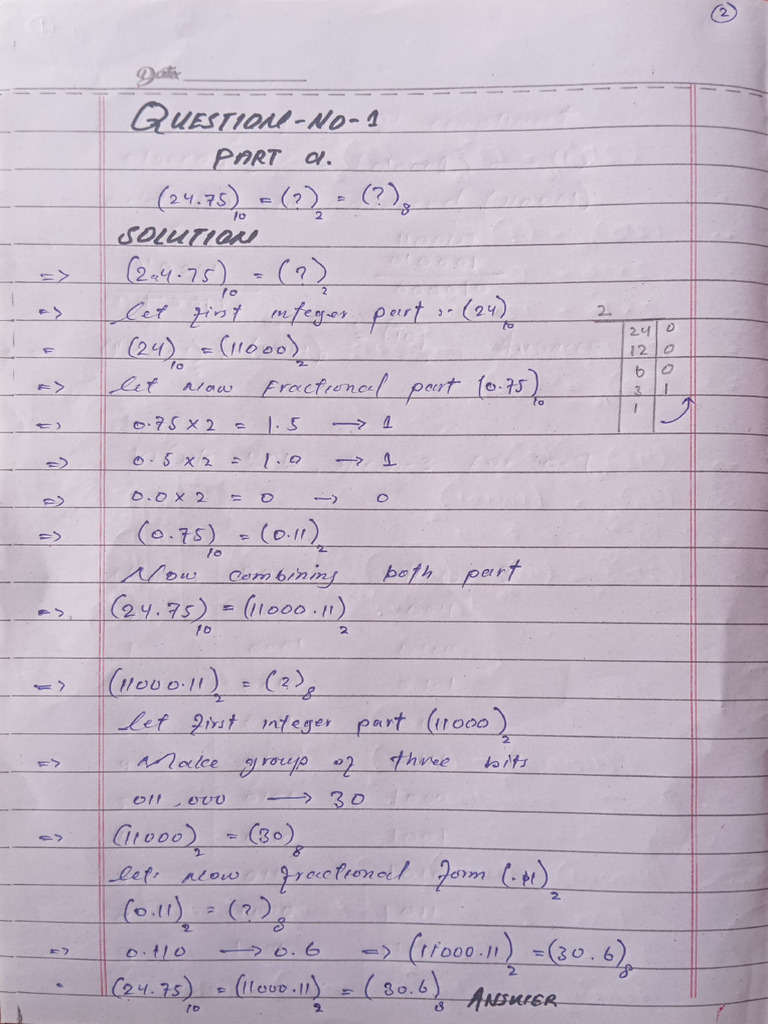 2
Date
QUESTION-NO-1
PART a.
(24.75)₁₀ = (?)₂ = (?)₈
SOLUTION
=> (24.75)₁₀ = (?)₂
=> let first integer part :- (24)₁₀
= (24)₁₀ = (11000)₂
2
24 0
12 0
6 0
3 1
1
=> let now Fractional part (0.75)₁₀
=> 0.75 x 2 = 1.5 → 1
=> 0.5 x 2 = 1.0 → 1
=> 0.0 x 2 = 0 → 0
=> (0.75)₁₀ = (0.11)₂
Now combining both part
=> (24.75)₁₀ = (11000.11)₂
=> (11000.11)₂ = (?)₈
let first integer part (11000)₂
=> Make group of three bits
011,000 → 30
=> (11000)₂ = (30)₈
let's now fractional form (.11)₂
(0.11)₂ = (?)₈
=> 0.110 → 0.6 => (11000.11)₂ = (30.6)₈
• (24.75)₁₀ = (11000.11)₂ = (30.6)₈ ANSWER